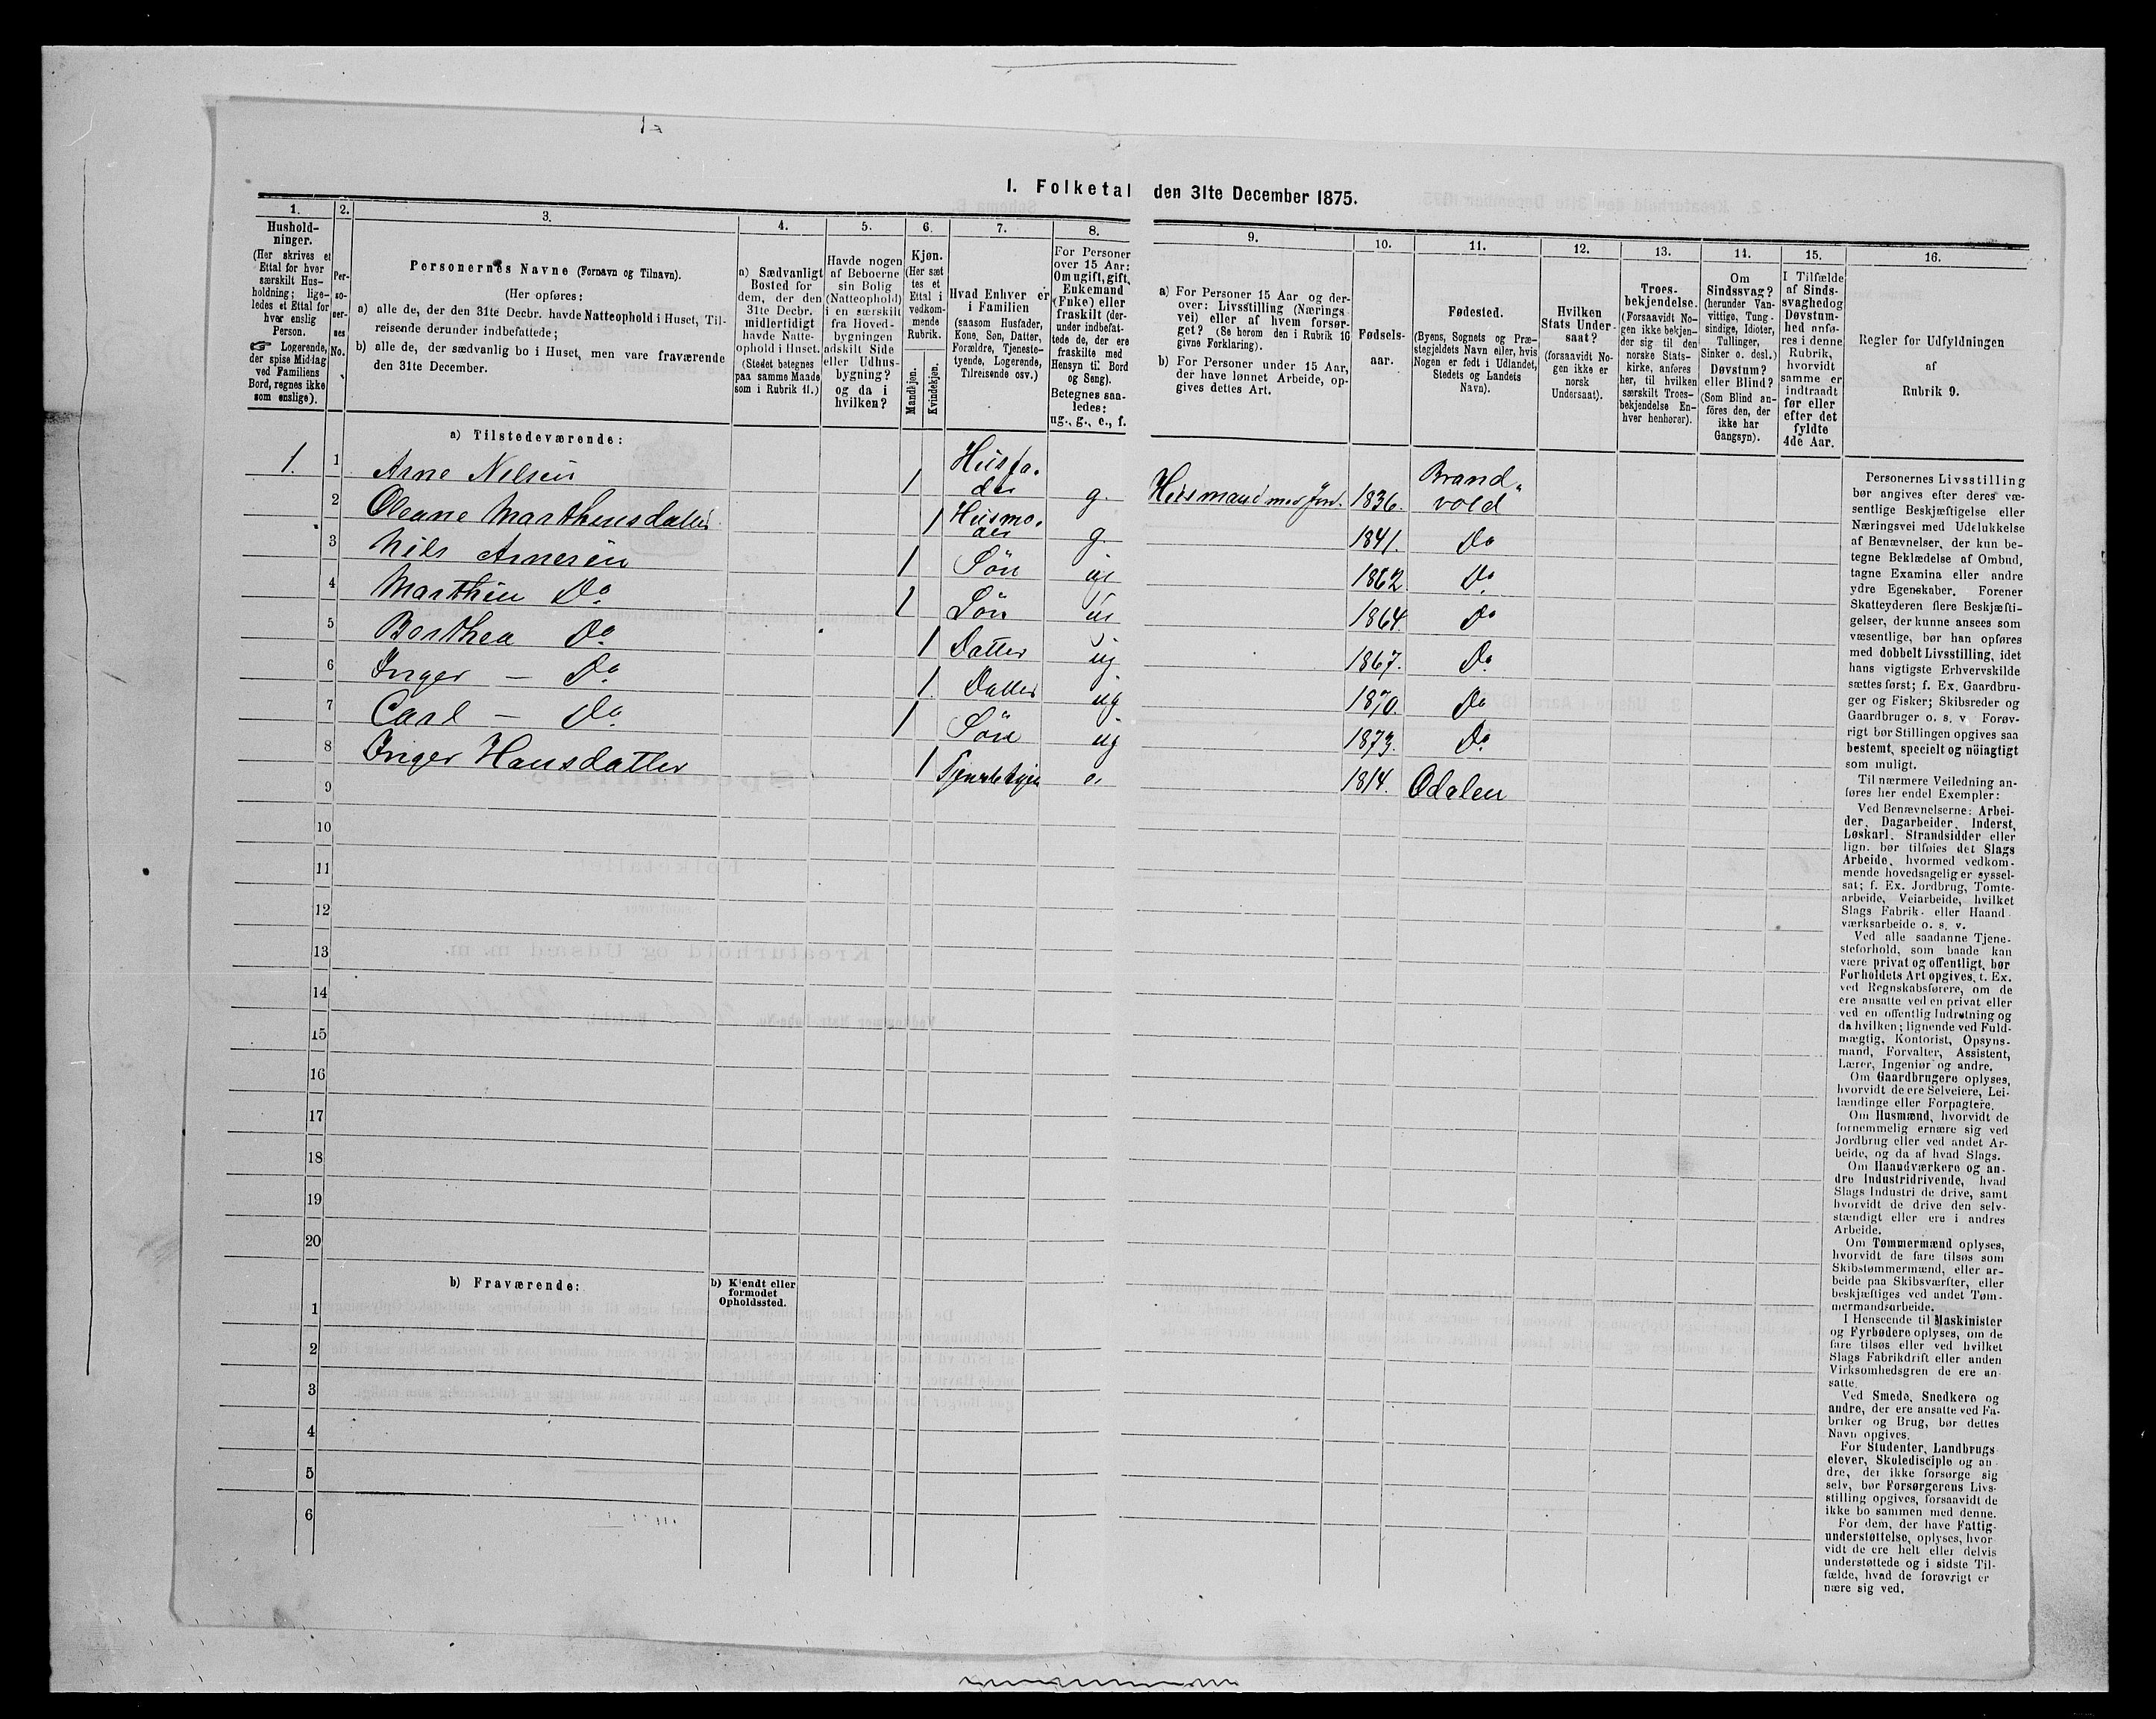 I. Folketal den 31te December 1875.
1.
Hushold-
ninger.
(Her skrives et
Ettal for hver
særskilt Hus-
holdning; lige-
ledes et Ettal for
hver enslig
Person.
☞ Logerende,
der spise Middag
ved Familiens
Bord, regnes ikke
som enslige).
2.
Per-
so-
ner-
nes
No.
3.
Personernes Navne (Fornavn og Tilnavn).
(Her opføres:
a) alle de, der den 31te Decbr. havde Natteophold i Huset, Til-
reisende derunder indbefattede;
b) alle de, der sædvanlig bo i Huset, men vare fraværende
den 31te December.
4.
a) Sædvanligt
Bosted for
dem, der den
31te Decbr.
midlertidigt
havde Natte-
ophold i Huset.
(Stedet betegnes
paa samme Maade
som i Rubrik 11.)
5.
Havde nogen
af Beboerne
sin Bolig
(Natteophold)
i en særskilt
fra Hoved-
bygningen
adskilt Side
eller Udhus-
bygning?
og da i
hvilken?
6.
Kjøn.
(Her sæt
tes et
Ettal i
vedkom-
mende
Rubrik.
Mandkjøn.
Kvindekjøn.
7.
Hvad Enhver er
i Familien
(saasom Husfader,
Kone, Søn, Datter,
Forældre, Tjeneste-
tyende, Logerende,
Tilreisende osv.)
8.
For Personer
over 15 Aar:
Om ugift, gift,
Enkemand
(Enke) eller
fraskilt (der-
under indbefat-
tede de, der ere
fraskilte med
Hensyn til Bord
og Seng).
Betegnes saa-
ledes:
ug., g., e., f.
9.
a) For Personer 15 Aar og der-
over: Livsstilling (Nærings
vei) eller af hvem forsør-
get? (Se herom den i Rubrik 16
givne Forklaring).
b) For Personer under 15 Aar,
der have lønnet Arbeide, op-
gives dettes Art.
10.
Fødsels-
aar.
11.
Fødested.
(Byens, Sognets og Præ-
stegjeldets Navn eller, hvis
Nogen er født i Udlandet,
Stedets og Landets
Navn).
12.
Hvilken
Stats Under-
saat?
(forsaavidt No-
gen ikke er
norsk
Undersaat).
13.
Troes-
bekjendelse.
(Forsaavidt No-
gen ikke bekjen-
der sig til den
norske Stats-
kirke, anføres
her, til hvilken
særskilt Troes-
bekjendelse En-
hver henhører).
14.
Om
Sindssvag?
(herunder Van-
vittige, Tung-
sindige, Idioter,
Tullinger,
Sinker o. desl.)
Døvstum?
eller Blind?
(Som Blind an-
føres den, der
ikke har
Gangsyn).
15.
I Tilfælde
af Sinds-
svaghed og
Døvstum-
hed anfø-
res i denne
Rubrik,
hvorvidt
samme er
indtraadt
før eller
efter det
fyldte
4de Aar.
16.
Regler for Udfyldningen
af
Rubrik 9.
a) Tilstedeværende:
1. 1 Arne Nilsen 1 Husfa. der g. Husmand med Jord. 1836. Brand vold
2 Oleane Marthinsdatter 1 Husmo. der g. 1841. Do
3 Nils Arnesen 1 Søn ug 1862 Do
4 Marthin Do 1 Søn ug 1864. Do
5 Berthea Do 1 Datter ug 1867. Do
6 Inger — Do 1 Datter ug 1870. Do
7 Carl — Do 1 Søn ug 1873. Do
8 Inger Hansdatter 1 e. 1814. Odalen
9
10
11
12
13
14
15
16
17
18
19
20
b) Fraværende:
b) Kjendt eller
formodet
Opholdssted.
1
2
3
4
5
6
Personernes Livsstilling
bør angives efter deres væ-
sentlige Beskjæftigelse eller
Næringsvei med Udelukkelse
af Benævnelser, der kun be-
tegne Beklædelse af Ombud,
tagne Examina eller andre
ydre Egenskaber. Forener
Skatteyderen flere Beskjæfti-
gelser, der kunne ansees som
væsentlige, bør han opføres
med dobbelt Livsstilling, idet
hans vigtigste Erhvervskilde
sættes først; f. Ex. Gaardbru-
ger og Fisker; Skibsreder og
Gaardbruger o. s. v. Forøv-
rigt bør Stillingen opgives saa
bestemt, specielt og nöiagtigt
som muligt.
Til nærmere Veiledning an-
føres her endel Exempler:
Ved Benævnelserne: Arbei-
der, Dagarbeider, Inderst,
Løskarl, Strandsidder eller
lign. bør tilføies det Slags
Arbeide, hvormed vedkom-
mende hovedsagelig er syssel-
sat; f. Ex. Jordbrug, Tomte-
arbeide, Veiarbeide, hvilket
Slags Fabrik- eller Haand
værksarbeide o. s. v.
Ved alle saadanne Tjene-
steforhold, som baade kan
være privat og offentligt, bør
Forholdets Art opgives, t. Ex.
ved Regnskabsførere, om de
ere ansatte ved en privat eller
ved en offentlig Indretning og
da hvilken; lignende ved Fuld-
mægtig, Kontorist, Opsyns-
mand, Forvalter, Assistent,
Lærer, Ingeniør og andre.
Om Gaardbrugere oplyses,
hvorvidt de ere Selveiere, Lei-
lændinge eller Forpagtere.
Om Husmænd, hvorvidt de
fornemmelig ernære sig ved
Jordbrug eller ved andet Ar-
beide, og da af hvad Slags.
Om Haandværkere og an-
dre Industridrivende, hvad
Slags Industri de drive, samt
hvorvidt de drive den selv-
stændigt eller ere i andres
Arbeide.
Om Tømmermænd oplyses,
hvorvidt de fare tilsøs som
Skibstømmermænd, eller ar-
beide paa Skibsværfter, eller
beskjæftiges ved andet Tøm-
mermandsarbeide.
I Henseende til Maskinister
og Fyrbødere oplyses, om de
fare tilsøs eller ved hvilket
Slags Fabrikdrift eller anden
Virksomhedsgren de ere an-
satte.
Ved Smede, Snedkere og
andre, der ere ansatte ved Fa-
briker og Brug, bør dettes
Navn opgives.
For Studenter, Landbrugs-
elever, Skoledisciple og an
dre, der ikke forsørge sig
selv, bør Forsørgerens Livs-
stilling opgives, forsaavidt de
ikke bo sammen med denne.
For dem, der have Fattig-
understøttelse, oplyses, hvor
vidt de ere helt eller delvis
understøttede og i sidste Til-
fælde, hvad de forøvrigt er
nære sig ved.